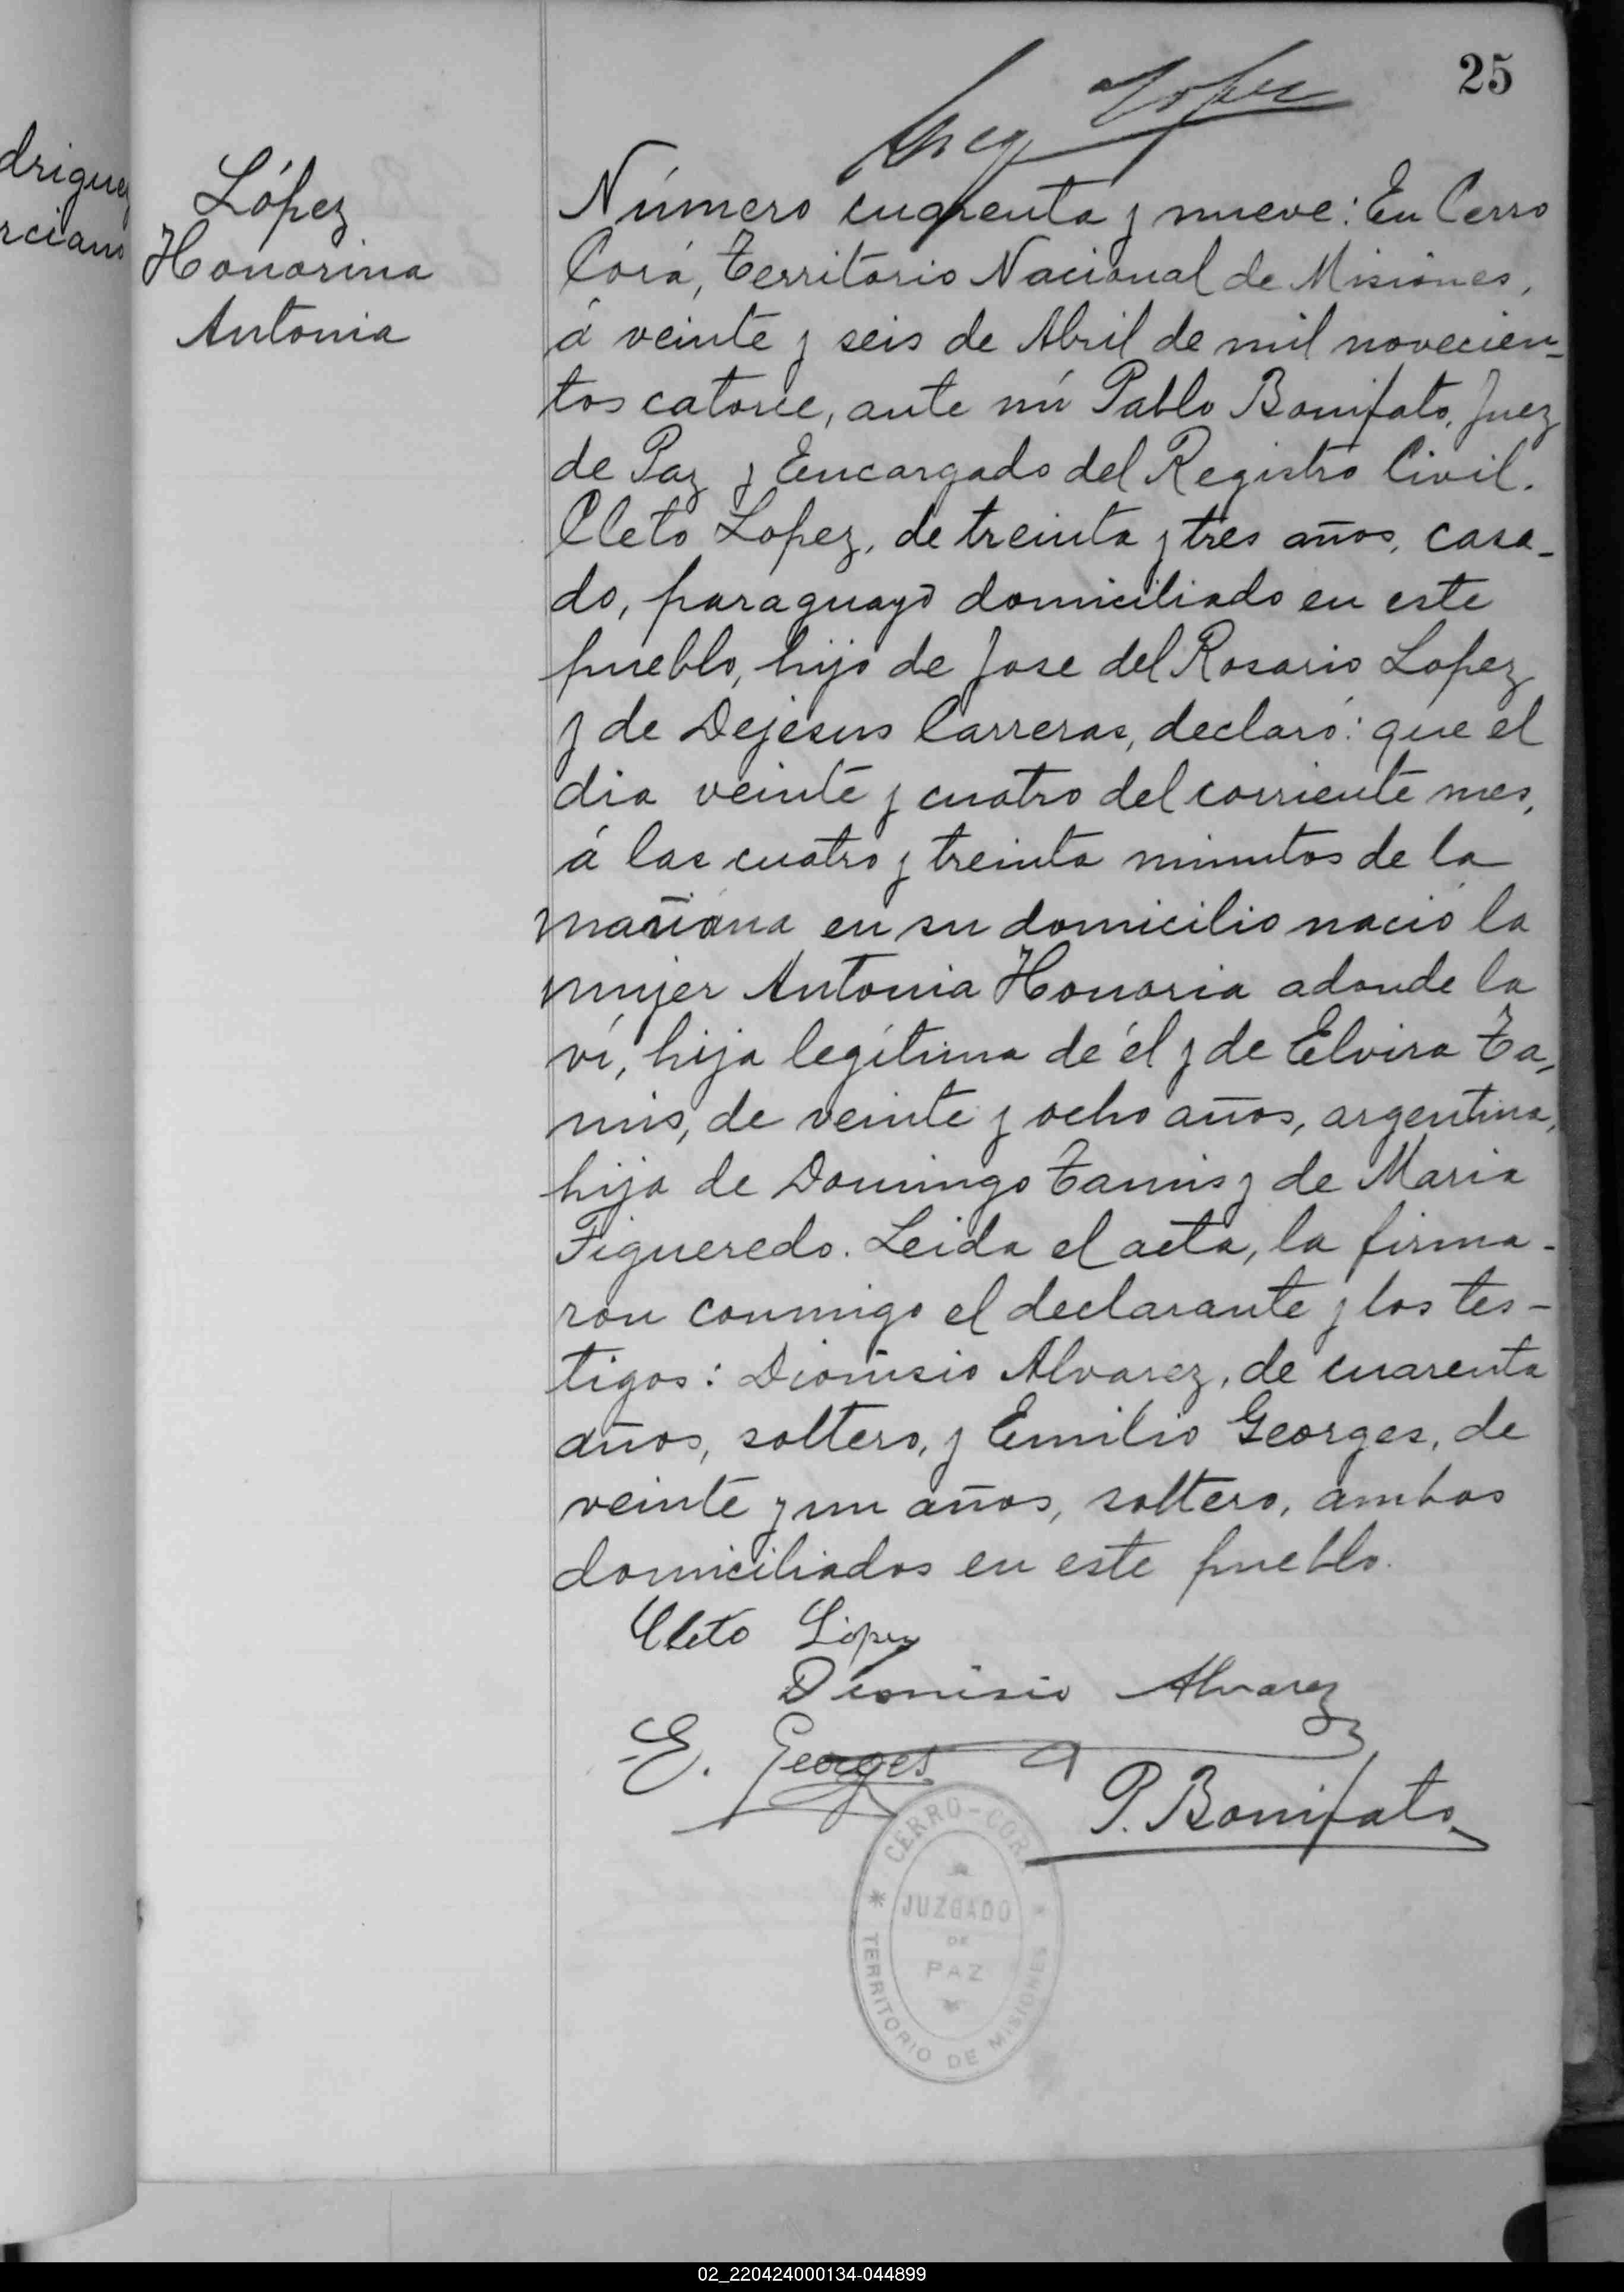 25
Lopez
driguez
rciano
López
Honorina
Antonia
Número cuarenta y nueve: En Cerro
Corá, Territorio Nacional de Misiones,
á veinte y seis de Abril de mil novecien-
tos catorce, ante mí Pablo Bonifato, Juez
de Paz y Encargado del Registro Civil.
Cleto Lopez, de treinta y tres años, casa-
do, paraguayo domiciliado en este
pueblo, hijo de Jose del Rosario Lopez
y de Dejesus Carreras, declaró: que el
dia veinte y cuatro del corriente mes,
á las cuatro y treinta minutos de la
mañana en su domicilio nació la
mujer Antonia Honoria adonde la
ví, hija legítima de él y de Elvira Ta-
nnis, de veinte y ocho años, argentina,
hija de Domingo Tannis y de Maria
Figueredo. Leida el acta, la firma-
ron conmigo el declarante y los tes-
tigos: Dionisio Alvarez, de cuarenta
años, soltero, y Emilio Georges, de
veinte y un años, soltero, ambos
domiciliados en este pueblo.
Cleto López
Dionisio Alvarez
E. Georges
P. Bonifato
CERRO-CORÁ
JUZGADO
DE
PAZ
TERRITORIO DE MISIONES
02_220424000134-044899